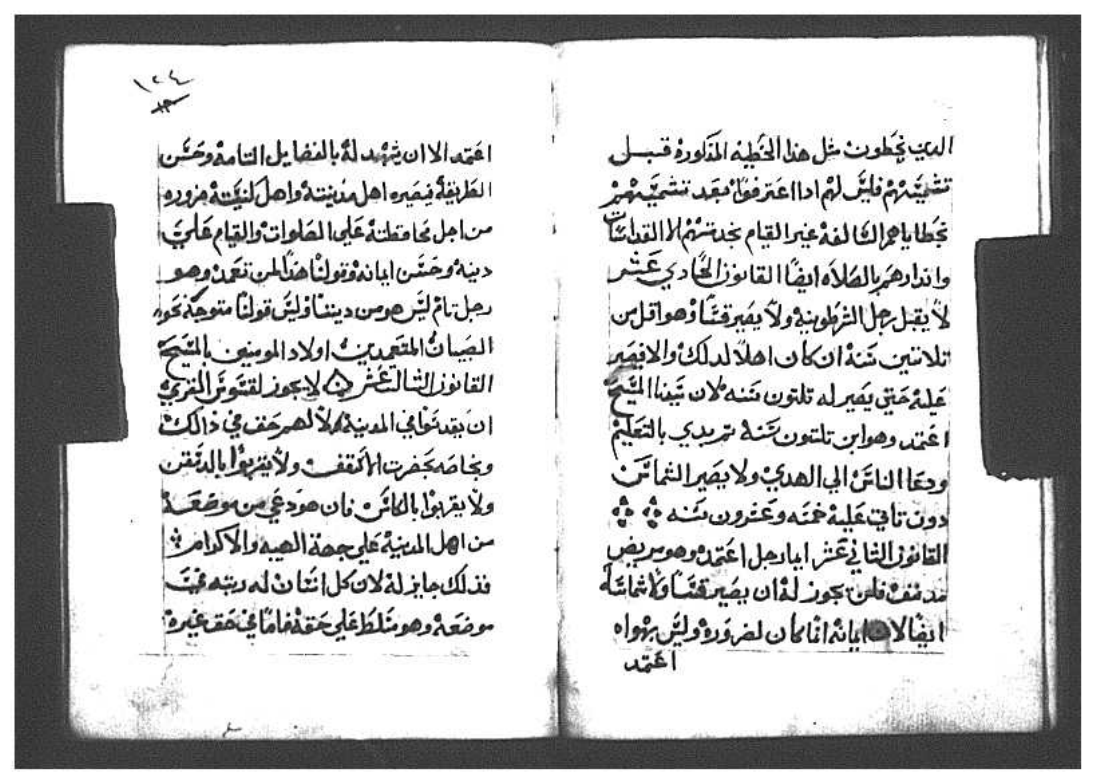 الدين يخطون مثل هذا الخطيه المذكورة قبل
تشميستهم فليس لهم اذا اعترفوا بعد تشميستهم
بخطاياهم السالفة غير القيام بخدمتهم الا القداسات
واندارهم بالصلاه ايضًا القانون الحادي عشر
لا يقبل رجل الشرطونية ولا يصير قسًا وهو اقل من
تلاتين سنة ان كان اهلًا لدلك والا فيصبر
عليه حتي يصير له تلتون سنه لان سيدنا المسيح
اعتمد وهو ابن تلتون سنة تم بدي بالتعليم
ودعا الناس الي الهدي ولا يصير الشماس
دون تاتي عليه خمسه وعشرون سنه
القانون الثاني عشر ايما رجل اعتمد وهو مريض
مدنف فليس يجوز له ان يصير قسًا ولا شماسًا
ايضًا لان ايمانه انما كان لضرورة وليس بهواه
اعتمد
١٢٤
اعتمد الا ان يشهد له بالفضايل التامة وحسن
الطريقة فيصيره اهل مدينته واهل كنيسته
من اجل محافظته علي الصلوات والقيام علي
دينه وحسن ايمانه وقولنا هذا لمن تعمد وهو
رجل تام ليس هو من ديننا وليس قولنا متوجه نحو
الصبيان المتعمدين اولاد المومنين بالمسيح
القانون التالت عشر لا يجوز لقسوس القري
ان يقدسوا في المدينة لا لهم حق في ذالك
وبخاصه بحضرت الاسقف ولا يقربوا بالدسقس
ولا يقربوا بالكاس فان هو دعي من موضعة
من اهل المدينة علي جهة الهيبه والاكرام
فذلك جايز له لان كل انسان له رتبه في
موضعة وهو مسلط علي حقه فاما في حق غيره